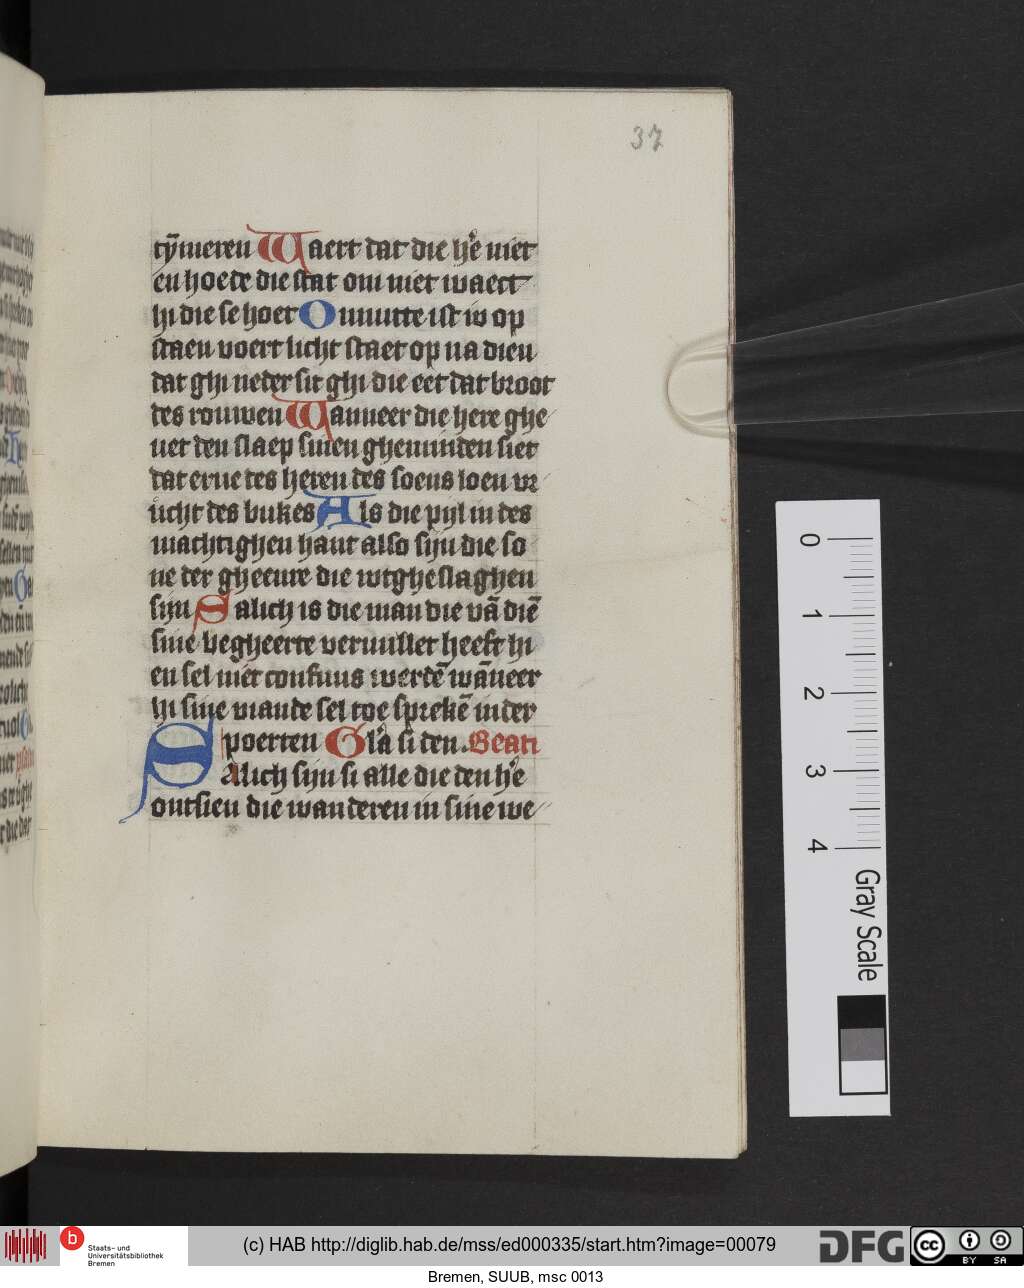 37
tȳmeren Waert dat die hr̄e niet
en hoede die stat om niet waect
hi die se hoet Onnutte ist iv op
staen voert licht staet op na dien
dat ghi neder sit ghi die eet dat broot
des rouwen Wanneer die here ghe
uet den slaep sinen gheminden siet
dat erue des heren des soens loen vr
ucht des bukes Als die pijl in des
machtighen hant also sijn die so
ne der gheenre die wtgheslaghen
sijn Salich is die man die vā diē
sine begheerte veruullet heeft hi
en sel niet confuus werdē wāneer
hi sine viande sel toe sprekē in der
poerten Glā si den. Beati
Salich sijn si alle die den hr̄e
ontsien die wanderen in sine we
0
1
2
3
4
Gray Scale
b
Staats- und
Universitätsbibliothek
Bremen
(c) HAB http://diglib.hab.de/mss/ed000335/start.htm?image=00079
DFG
cc
BY SA
Bremen, SUUB, msc 0013